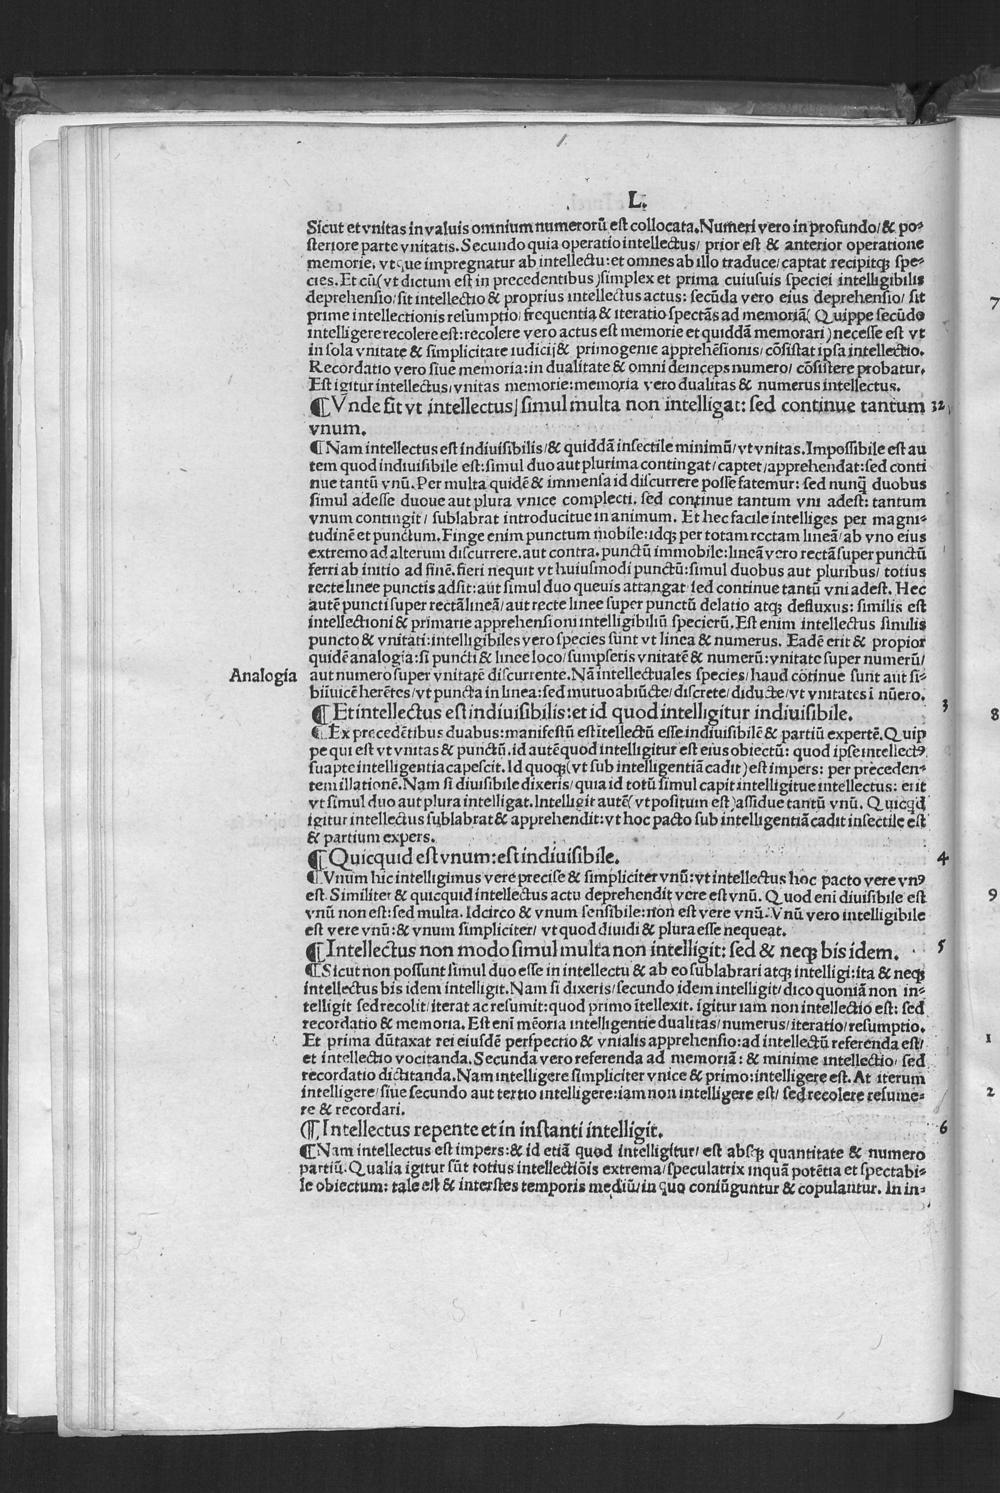 L.
Sicut et vnitas in valuis omnium numerorũ est collocata. Numeri vero in profundo/& po-
steriore parte vnitatis. Secundo quia operatio intellectus/ prior est & anterior operatione
memorie. vtque impregnatur ab intellectu: et omnes ab illo traduce/captat recipitqꝫ spe-
cies. Et cũ(vt dictum est in precedentibus)simplex et prima cuiusuis speciei intelligibilis
deprehensio/sit intellectio & proprius intellectus actus: secũda vero eius deprehensio/ sit
prime intellectionis resumptio/frequentia & iteratio spectãs ad memoriã( Quippe secũdo
intelligere recolere est:recolere vero actus est memorie et quiddã memorari)necesse est vt
in sola vnitate & simplicitate iudicij& primogenie apprehẽsionis/cõsistat ipsa intellectio.
Recordatio vero siue memoria:in dualitate & omni deinceps numero/cõsistere probatur.
Est igitur intellectus/vnitas memorie:memoria vero dualitas & numerus intellectus.
¶Vnde fit vt intellectus/simul multa non intelligat: sed continue tantum 32
vnum.
¶Nam intellectus est indiuisibilis/& quiddã insectile minimũ/vt vnitas. Impossibile est au
tem quod indiuisibile est:simul duo aut plurima contingat/captet/apprehendat:sed conti
nue tantũ vnũ. Per multa quidẽ & immensa id discurrere posse fatemur: sed nunq̃ duobus
simul adesse duoue aut plura vnice complecti. sed continue tantum vni adest: tantum
vnum contingit/ sublabrat introducitue in animum. Et hec facile intelliges per magni-
tudinẽ et punctum. Finge enim punctum mobile:idqꝫ per totam rectam lineã/ab vno eius
extremo ad alterum discurrere.aut contra. punctũ immobile:lineã vero rectã super punctũ
ferri ab initio ad finẽ.fieri nequit vt huiusmodi punctũ:simul duobus aut pluribus/ totius
recte linee punctis adsit:aut simul duo queuis attrangat sed continue tantũ vni adest. Hec
autẽ puncti super rectã lineã/aut recte linee super punctũ delatio atqꝫ defluxus: similis est
intellectioni & primarie apprehensioni intelligibiliũ specierũ. Est enim intellectus similis
puncto & vnitati:intelligibiles vero species sunt vt linea & numerus. Eadẽ erit & propior
quidẽ analogia:si puncti & linee loco/sumpseris vnitatẽ & numerũ:vnitate super numerũ/
Analogia aut numero super vnitatẽ discurrente. Nã intellectuales species/haud cõtinue sunt aut si-
biiuicẽ herẽtes/vt puncta in linea:sed mutuo abiũcte/discrete/diducte/vt vnitates ĩ nũero.
¶Et intellectus est indiuisibilis:et id quod intelligitur indiuisibile. 3
¶Ex precedẽtibus duabus:manifestũ est ĩtellectũ esse indiuisibilẽ & partiũ expertẽ. Quip
pe qui est vt vnitas & punctũ. id autẽ quod intelligitur est eius obiectũ: quod ipse intellectꝰ
suapte intelligentia capescit. Id quoqꝫ(vt sub intelligentiã cadit)est impers: per preceden-
tem illationẽ. Nam si diuisibile dixeris/quia id totũ simul capit intelligitue intellectus: erit
vt simul duo aut plura intelligat. Intelligit autẽ(vt positum est)assidue tantũ vnũ. Quicqd
igitur intellectus sublabrat & apprehendit:vt hoc pacto sub intelligentiã cadit insectile est
& partium expers.
¶Quicquid est vnum:est indiuisibile. 4
¶Vnum hic intelligimus vere precise & simpliciter vnũ:vt intellectus hoc pacto vere vnꝰ
est. Similiter & quicquid intellectus actu deprehendit vere est vnũ. Quod eni diuisibile est
vnũ non est:sed multa. Idcirco & vnum sensibile:non est vere vnũ. Vnũ vero intelligibile
est vere vnũ:& vnum simpliciter/ vt quod diuidi & plura esse nequeat.
¶Intellectus non modo simul multa non intelligit: sed & neqꝫ bis idem. 5
¶Sicut non possunt simul duo esse in intellectu & ab eo sublabrari atqꝫ intelligi:ita & neqꝫ
intellectus bis idem intelligit. Nam si dixeris/secundo idem intelligit/dico quoniã non in-
telligit sed recolit/iterat ac resumit:quod primo ĩtellexit. igitur iam non intellectio est: sed
recordatio & memoria. Est enĩ mẽoria intelligentie dualitas/numerus/iteratio/resumptio.
Et prima dũtaxat rei eiusdẽ perspectio & vnialis apprehensio:ad intellectũ referenda est/
et intellectio vocitanda. Secunda vero referenda ad memoriã: & minime intellectio/ sed
recordatio dictitanda. Nam intelligere simpliciter vnice & primo:intelligere est. At iterum
intelligere/siue secundo aut tertio intelligere:iam non intelligere est/ sed recolere resume-
re & recordari.
¶Intellectus repente et in instanti intelligit. 6
¶Nam intellectus est impers:& id etiã quod intelligitur/ est absqꝫ quantitate & numero
partiũ. Qualia igitur sũt totius intellectiõis extrema/speculatrix inquã potẽtia et spectabi-
le obiectum: tale est & interstes temporis mediũ/in quo coniũguntur & copulantur. In in-
7
8
9
1
2